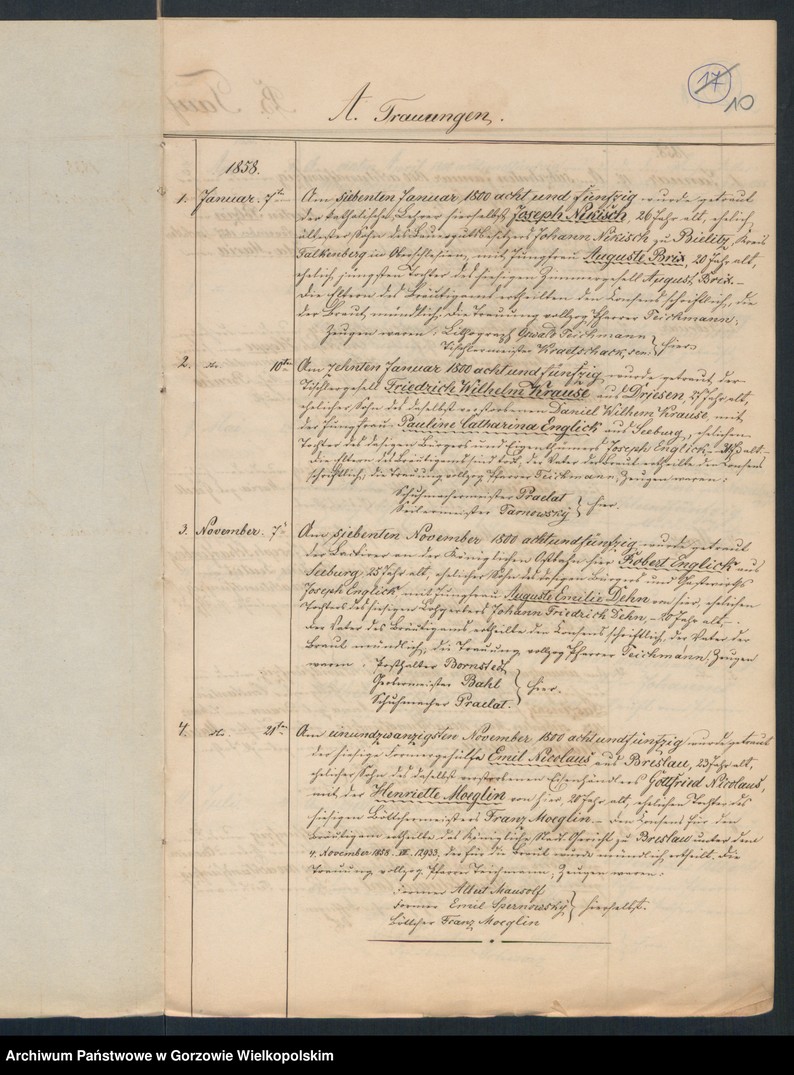 17
10
A. Trauungen.
1858.
1. Januar. 7te Am siebenten Januar 1800 acht und fünfzig wurde getraut
der katholische Lehrer hierselbst Joseph Nekisch, 26 Jahr alt, ehelich
ältester Sohn des Bauergutsbesitzers Johann Nekisch zu Bielitz, Kreis
Falkenberg in Oberschlesien, mit Jungfrau Auguste Brix, 20 Jahr alt,
ehelich jüngsten Tochter des hiesigen Zimmergesell August Brix.–
Die Eltern des Bräutigams ertheilten den Consens schriftlich, die
der Braut mündlich; die Trauung vollzog Pfarrer Teichmann;
Zeugen waren: Lithograph Oswald Teichmann
Tischlermeister Kraetschack, sen. } hier.
2. do. 10ten Am zehnten Januar 1800 acht und fünfzig wurde getraut der
Tischlergesell Friedrich Wilhelm Krause aus Driesen, Jahr alt,
ehelicher Sohn des daselbst verstorbenen Daniel Wilhem Krause, mit
der Jungfrau Pauline Catharina Englick aus Seeburg, ehelichen
Tochter des dasigen Bürgers und Eigenthümers Joseph Englick, alt.–
Die Eltern des Bräutigams sind todt, der Vater der Braut ertheilte den Consens
schriftlich; die Trauung vollzog Pfarrer Teichmann; Zeugen waren:
Schuhmachermeister Praelat
Seilermeister Tarnowsky } hier.
3. November. 7t Am siebenten November 1800 achtundfünfzig wurde getraut
der Lackirer an der Königlichen Ostbahn hier Robert Englick aus
Seeburg, 25 Jahr alt, ehelicher Sohn des dasigen Bürgers und Gastwirths
Joseph Englick, mit Jungfrau Auguste Emilie Dehn von hier, ehelichen
Tochter des hiesigen Lohgerbers Johann Friedrich Dehn, – 20 Jahr alt. –
Der Vater des Bräutigams ertheilte den Consens schriftlich, der Vater der
Braut mündlich; die Trauung vollzog Pfarrer Teichmann; Zeugen
waren: Posthalter Bornstedt
Gerbermeister Bahl
Schuhmacher Praelat. } hier.
4. do. 21ten Am einundzwanzigsten November 1800 achtundfünfzig wurde getraut
der hiesige Formergehülfe Emil Nicolaus aus Breslau, 23 Jahr alt,
ehelicher Sohn des daselbst verstorbenen Eisenhändlers Gottfried Nicolaus,
mit der Henriette Moeglin von hier, 20 Jahr alt, ehelichen Tochter des
hiesigen Böttchermeisters Franz Moeglin. – Den Consens für den
Bräutigam ertheilte das Königliche Stadt Gericht zu Breslau unter dem
4. November 1858. III. 12933, der für die Braut wurde mündlich ertheilt. Die
Trauung vollzog Pfarrer Teichmann; Zeugen waren:
Former Albert Mausolf
Former Emil Spernowsky
Böttcher Franz Moeglin } hierselbst.
Archiwum Państwowe w Gorzowie Wielkopolskim